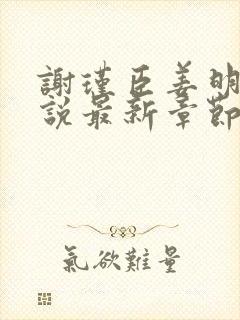 謝瑾臣姜明
說最新章節
氣欲難量